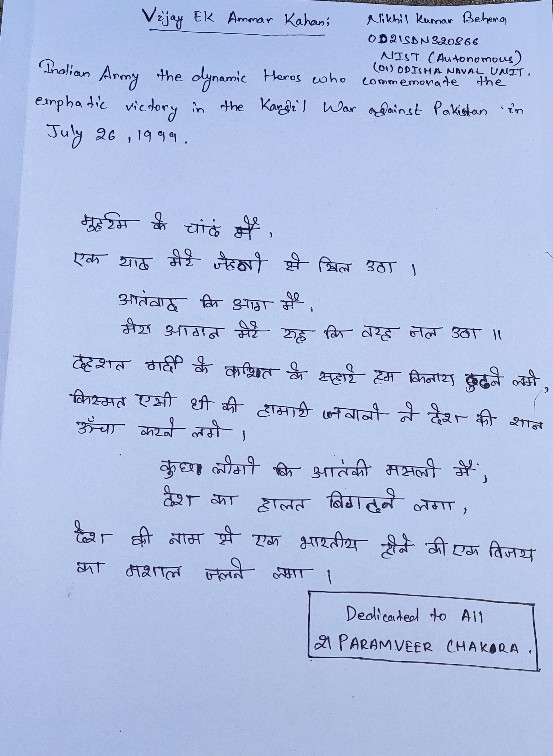 Vijay EK Ammar Kahani
Nikhil Kumar Behera
OD21SDN320866
NIST (Autonomous)
(01) ODISHA NAVAL UNIT.
Indian Army the dynamic Heros who commemorate the
emphatic victory in the Kargil War against Pakistan in
July 26, 1999.
मुहर्रम के चांद में,
एक याद मेरे जेहनो से खिल उठा ।
आतंवाद कि आग में,
मेरा आगन मेरे रुह कि तरह जल उठा ॥
दहशत गर्दी के कश्ति के सहारे हम किनारा ढुढने लगे,
किस्मत एसी थी की हामारी जवानो ने देश की शान
ऊँचा करने लगे ।
कुछ लोगो कि आतंकी मसलो में,
देश का हालत बिगडने लगा,
देश की नाम से एक भारतीय होने की एक विजय
का मशाल जलने लगा ।
Dedicated to All
21 PARAMVEER CHAKRA.